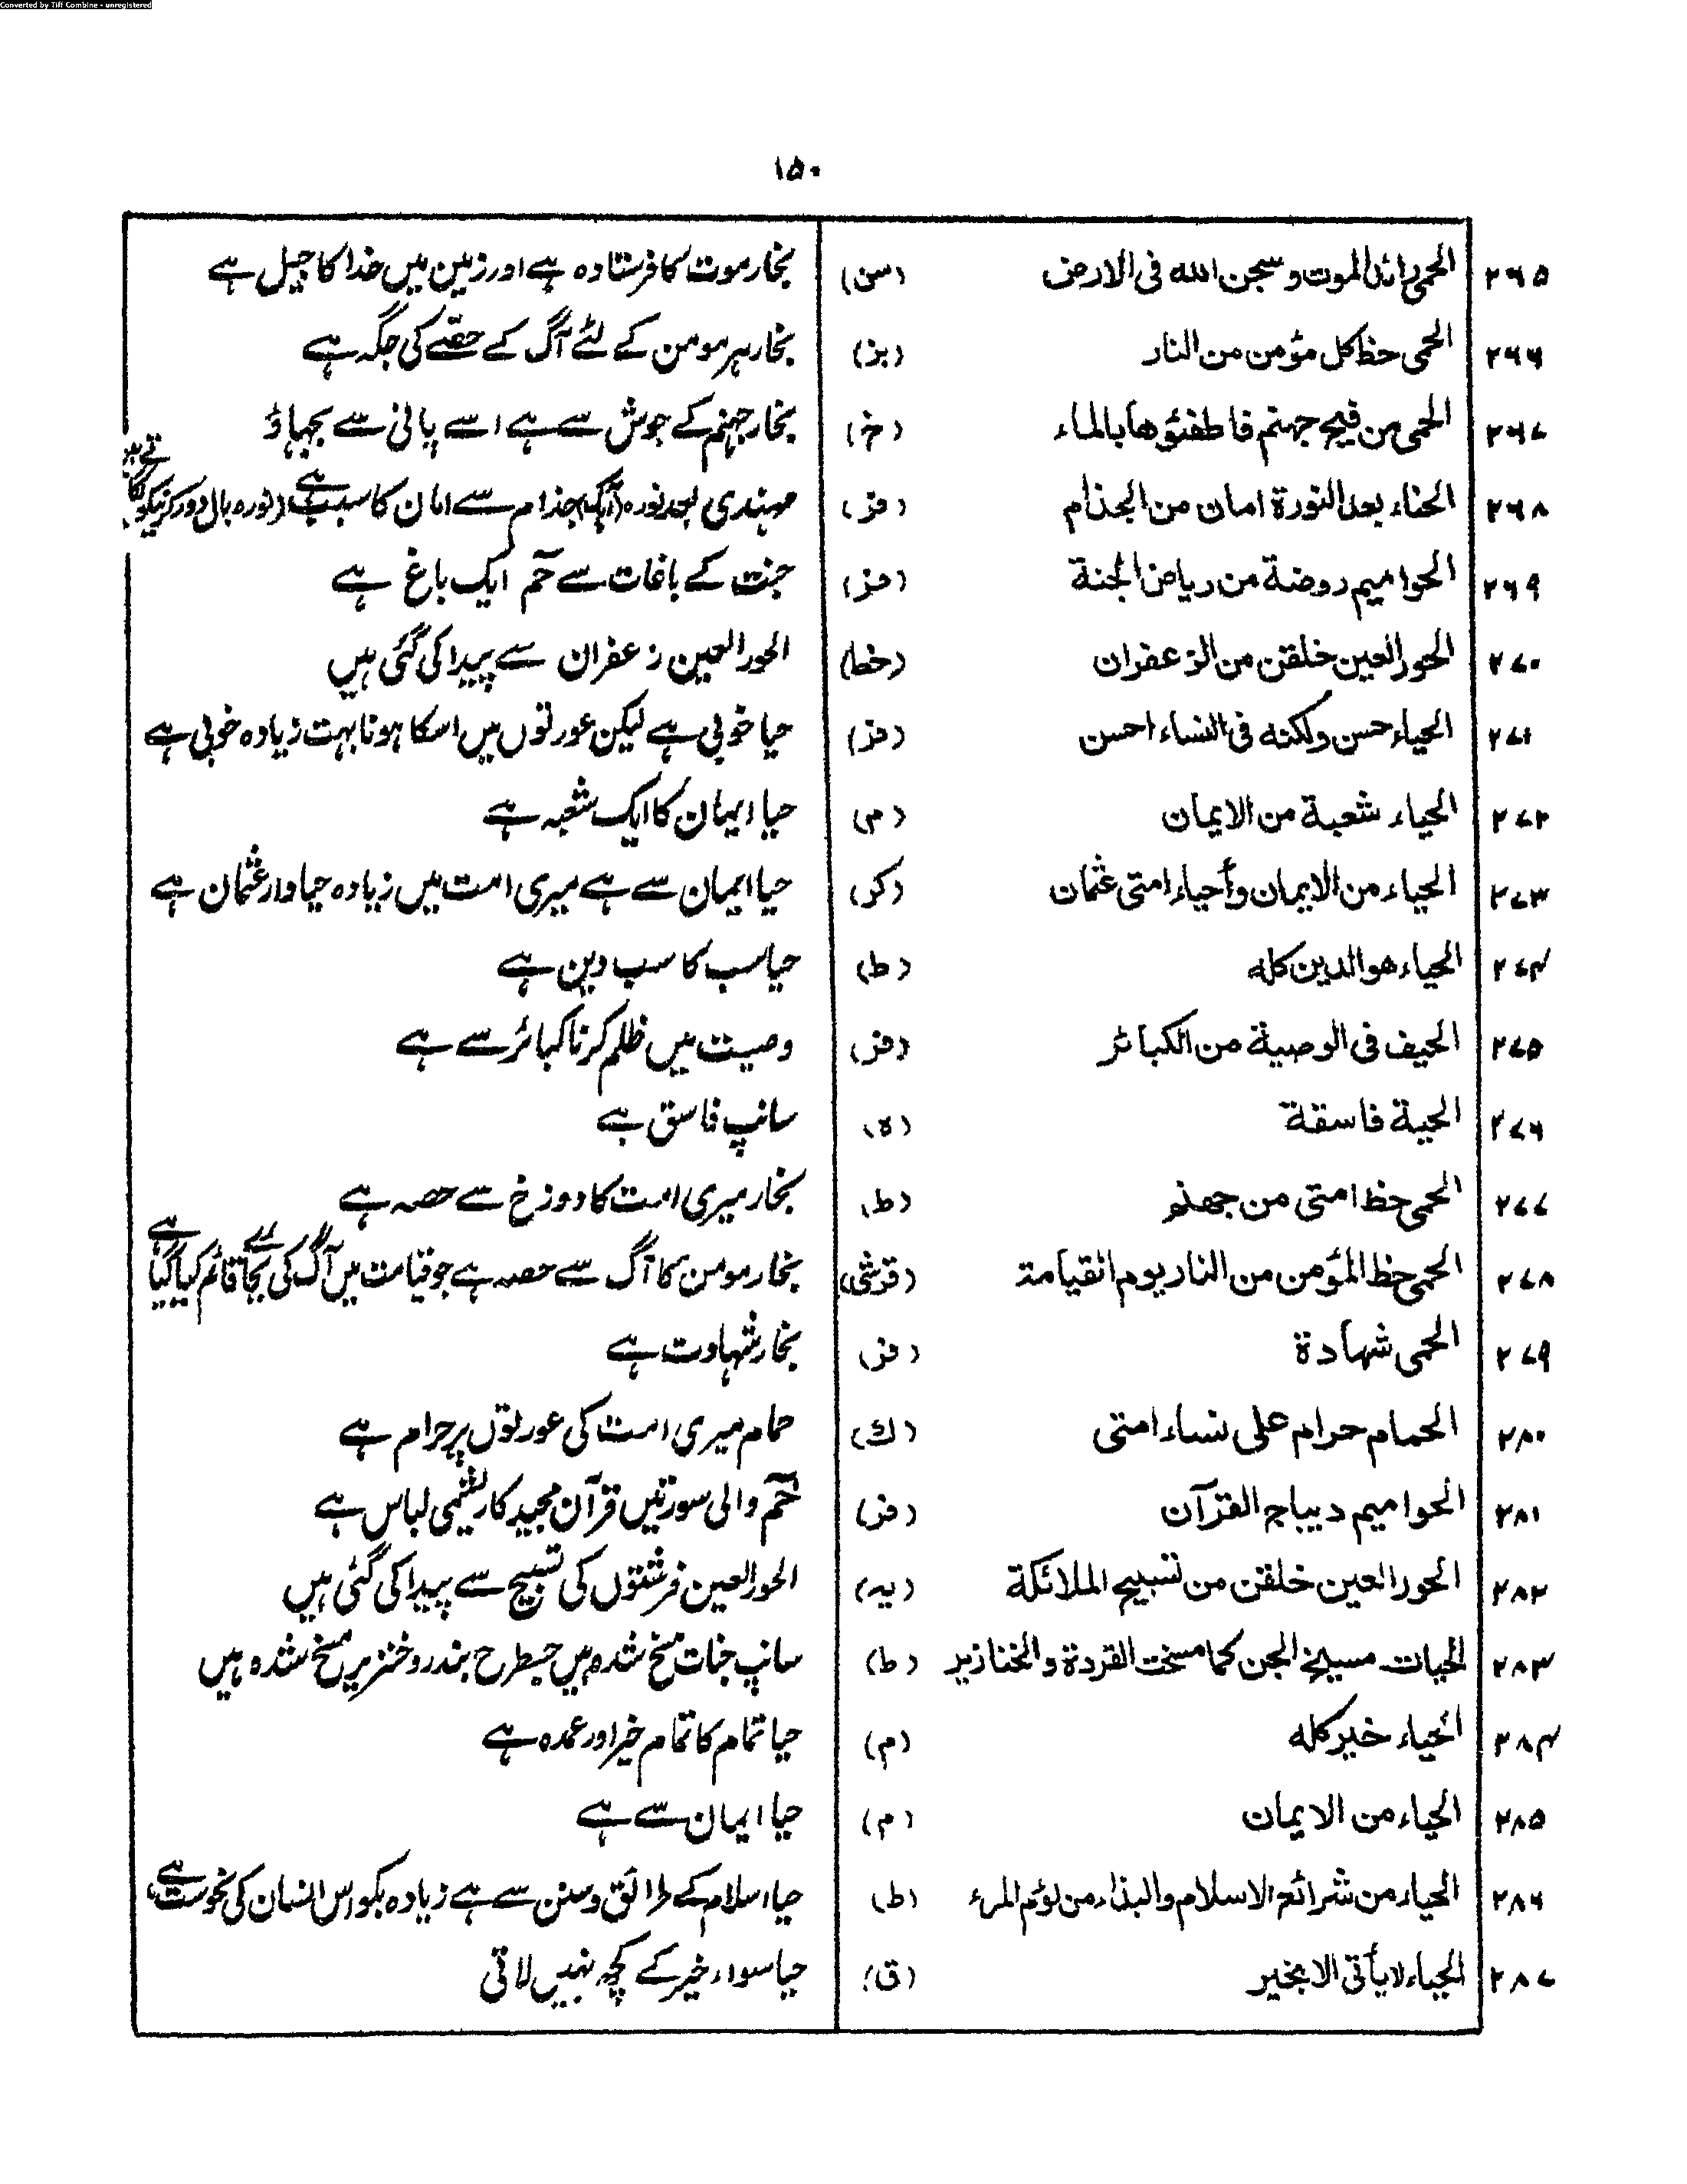 Converted by Tiff Combine - unregistered
۱۵۰
۲۶۵ الحمی رائد الموت وسجن الله فی الارض (سن) بخار موت کا فرستادہ ہے اور زمین میں خدا کا جیل ہے
۲۶۶ الحمی حظ کل مؤمن من النار (بز) بخار ہر مومن کے لئے آگ کے حصّے کی جگہ ہے
۲۶۷ الحمی من فیح جهنم فاطفئوها بالماء (خ) بخار جہنم کے جوش سے ہے اسے پانی سے بجھاؤ
۲۶۸ الحناء بعد النورة امان من الجذام (فر) مہندی بعد نورہ جذام سے امان کا سبب ہے (نورہ بال دور کرنیکو
۲۶۹ الحوامیم روضة من ریاض الجنة (فر) جنت کے باغات سے حٓم ایک باغ ہے
۲۷۰ الحور العین خلقن من الزعفران (خط) الحور العین زعفران سے پیدا کی گئی ہیں
۲۷۱ الحیاء حسن ولکنه فی النساء احسن (فر) حیا خوبی ہے لیکن عورتوں میں اسکا ہونا بہت زیادہ خوبی ہے
۲۷۲ الحیاء شعبة من الایمان (م) حیا ایمان کا ایک شعبہ ہے
۲۷۳ الحیاء من الایمان وأحیاء امتی عثمان (کر) حیا ایمان سے ہے میری امت میں زیادہ حیادار عثمان ہے
۲۷۴ الحیاء هو الدین کله (ط) حیا سب کا سب دین ہے
۲۷۵ الحیف فی الوصیة من الکبائر (فر) وصیت میں ظلم کرنا کبائر سے ہے
۲۷۶ الحیة فاسقة (ہ) سانپ فاسق ہے
۲۷۷ الحمی حظ امتی من جهنم (ط) بخار میری امت کا دوزخ سے حصہ ہے
۲۷۸ الحمی حظ المؤمن من النار یوم القیامة (قرشی) بخار مومن کا آگ سے حصہ ہے جو قیامت میں آگ کی بجائے قائم کیا گیا ہے
۲۷۹ الحمی شهادة (فر) بخار شہادت ہے
۲۸۰ الحمام حرام علی نساء امتی (ك) حمام میری امت کی عورتوں پر حرام ہے
۲۸۱ الحوامیم دیباج القرآن (فر) حٓم والی سورتیں قرآن مجید کا ریشمی لباس ہے
۲۸۲ الحور العین خلقن من تسبیح الملائکة (یہ) الحور العین فرشتوں کی تسبیح سے پیدا کی گئی ہیں
۲۸۳ الحیات مسیخ الجن کما مسخت القردة والخنازیر (ط) سانپ جنات مسخ شدہ ہیں جسطرح بندر و خنزیر مسخ شدہ ہیں
۲۸۴ الحیاء خیر کله (م) حیا تمام کا تمام خیر اور عمدہ ہے
۲۸۵ الحیاء من الایمان (م) حیا ایمان سے ہے
۲۸۶ الحیاء من شرائع الاسلام والبذاء من لؤم المرء (ط) حیا اسلام کے طرائق و سنن سے ہے زیادہ بکواس انسان کی نحوست ہے
۲۸۷ الحیاء لا یأتی الا بخیر (ق) حیا سواء خیر کے کچھ نہیں لاتی